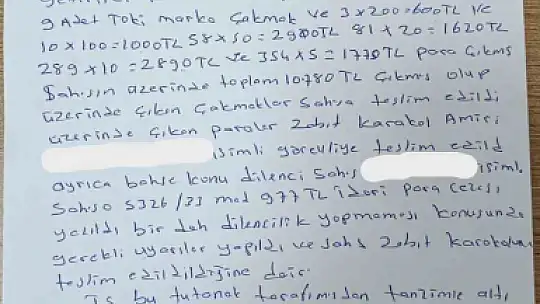 9 Adet Toki marka Çakmak ve 3x200=600TL ve
10 x 100=1000TL 58 x 50 = 2900TL 81 x 20 = 1620TL
289 x 10 = 2890TL ve 354 x 5 = 1770TL para Çıkmış
Şahısın üzerinde toplam 10780 TL Çıkmış olup
üzerinde çıkan Çakmaklar Şahsa teslim edildi
üzerinde çıkan paralar Zabıt Karakol Amiri
isimli görevliye teslim edild
ayrıca bahse konu dilenci Şahıs isimli
Şahsa 5326/33 mad 977 TL idari para cezası
yazıldı bir dah dilencilik yapmaması konusunda
gerekli uyarılar yapıldı ve şahs Zabıt Karakoluna
teslim edildildiğine dair.
İş bu tutanak tarafımızdan tanzimle altı